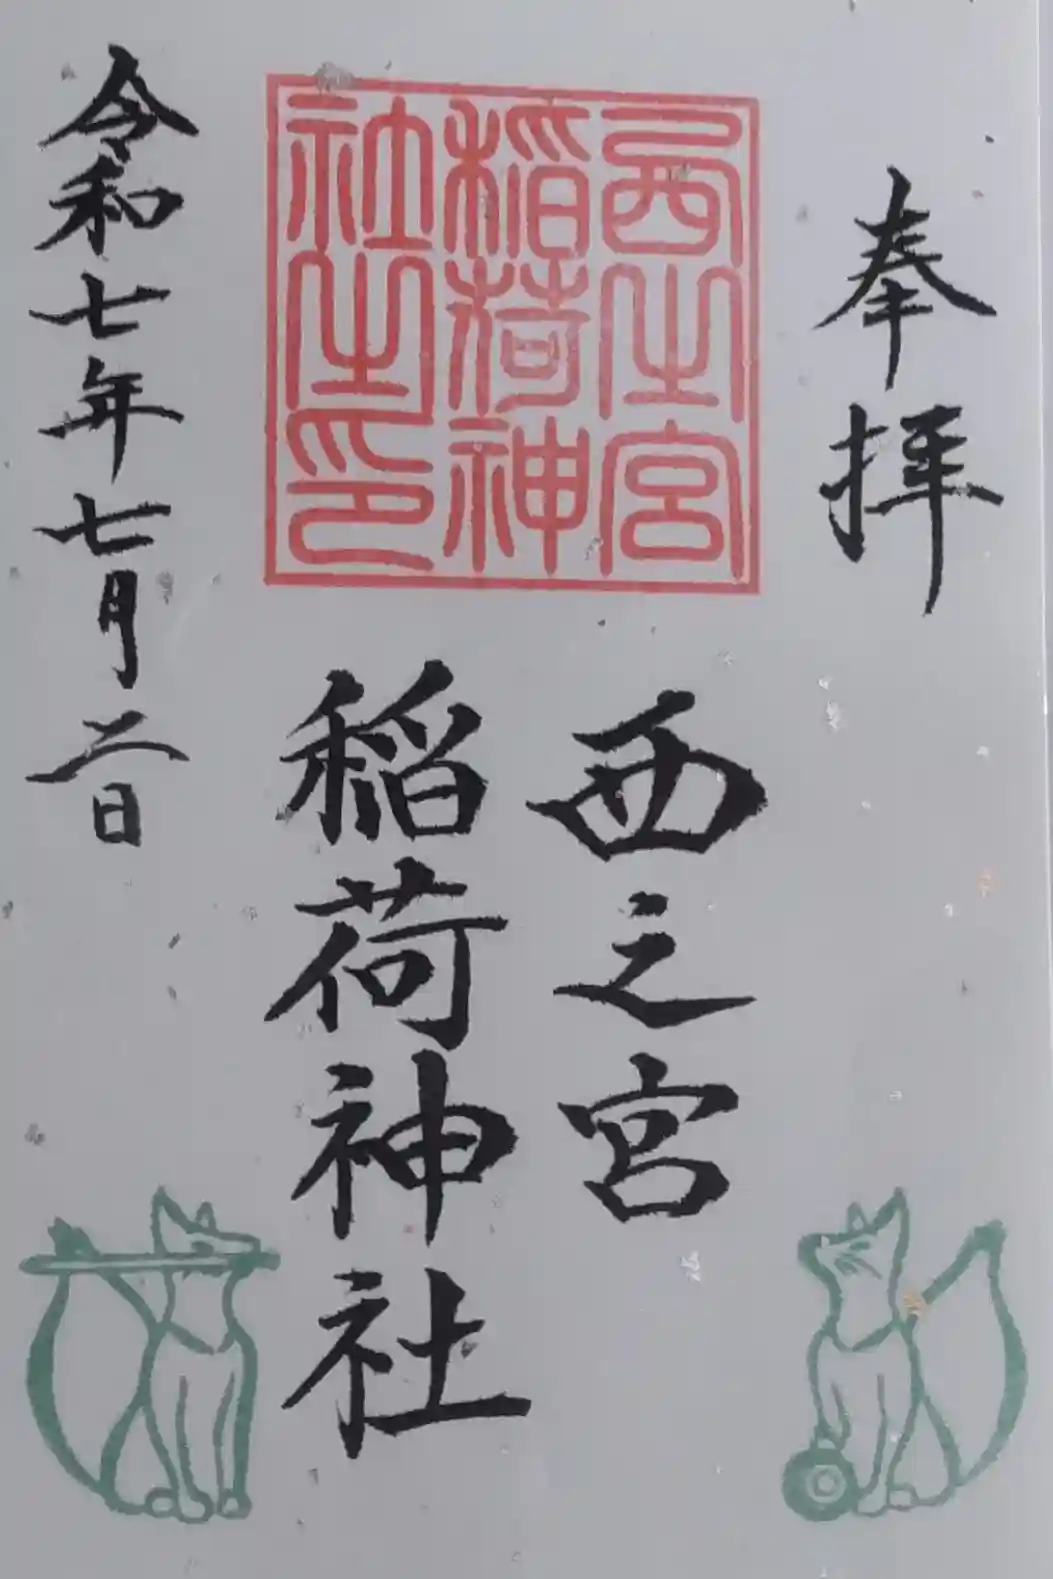 奉拝
西之宮
稲荷神社
西之宮
稲荷神
社之印
令和七年七月二日